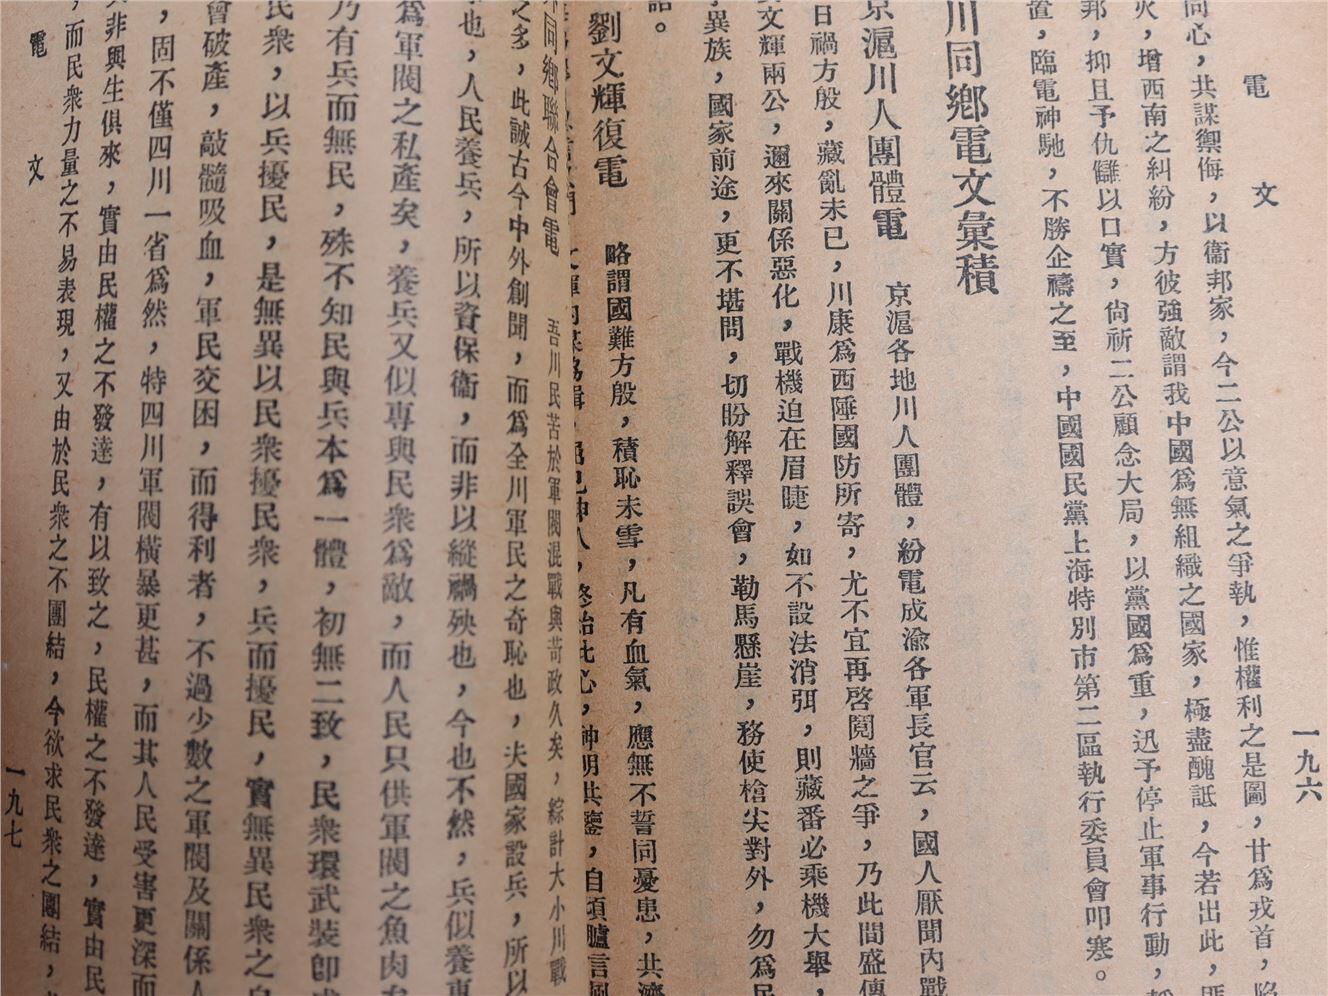 電
文
一九六
同心，共謀禦侮，以衞邦家，今二公以意氣之爭執，惟權利之是圖，甘爲戎首，陷
火，增西南之糾紛，方彼強敵謂我中國爲無組織之國家，極盡醜詆，今若出此，匪
邦，抑且予仇讎以口實，尙祈二公顧念大局，以黨國爲重，迅予停止軍事行動，靜
置，臨電神馳，不勝企禱之至，中國國民黨上海特別市第二區執行委員會叩寒。
川同鄉電文彙積
京滬川人團體電
京滬各地川人團體，紛電成渝各軍長官云，國人厭聞內戰
日禍方殷，藏亂未已，川康爲西陲國防所寄，尤不宜再啓鬩牆之爭，乃此間盛傳
文輝兩公，邇來關係惡化，戰機迫在眉睫，如不設法消弭，則藏番必乘機大舉，
異族，國家前途，更不堪問，切盼解釋誤會，勒馬懸崖，務使槍尖對外，勿爲民
詬。
劉文輝復電
略謂國難方殷，積恥未雪，凡有血氣，應無不誓同憂患，共濟
終始此心，神明共鑒，自頃臚言風
同鄉聯合會電
吾川民苦於軍閥混戰與苛政久矣，綜計大小川戰
之多，此誠古今中外創聞，而爲全川軍民之奇恥也，夫國家設兵，所以
也，人民養兵，所以資保衞，而非以縱禍殃也，今也不然，兵似養專
爲軍閥之私產矣，養兵又似專與民衆爲敵，而人民只供軍閥之魚肉
乃有兵而無民，殊不知民與兵本爲一體，初無二致，民衆環武裝卽
民衆，以兵擾民，是無異以民衆擾民衆，兵而擾民，實無異民衆之自
會破產，敲髓吸血，軍民交困，而得利者，不過少數之軍閥及關係人
，固不僅四川一省爲然，特四川軍閥橫暴更甚，而其人民受害更深而
非與生俱來，實由民權之不發達，有以致之，民權之不發達，實由民
，而民衆力量之不易表現，又由於民衆之不團結，今欲求民衆之團結，
電
文
一九七